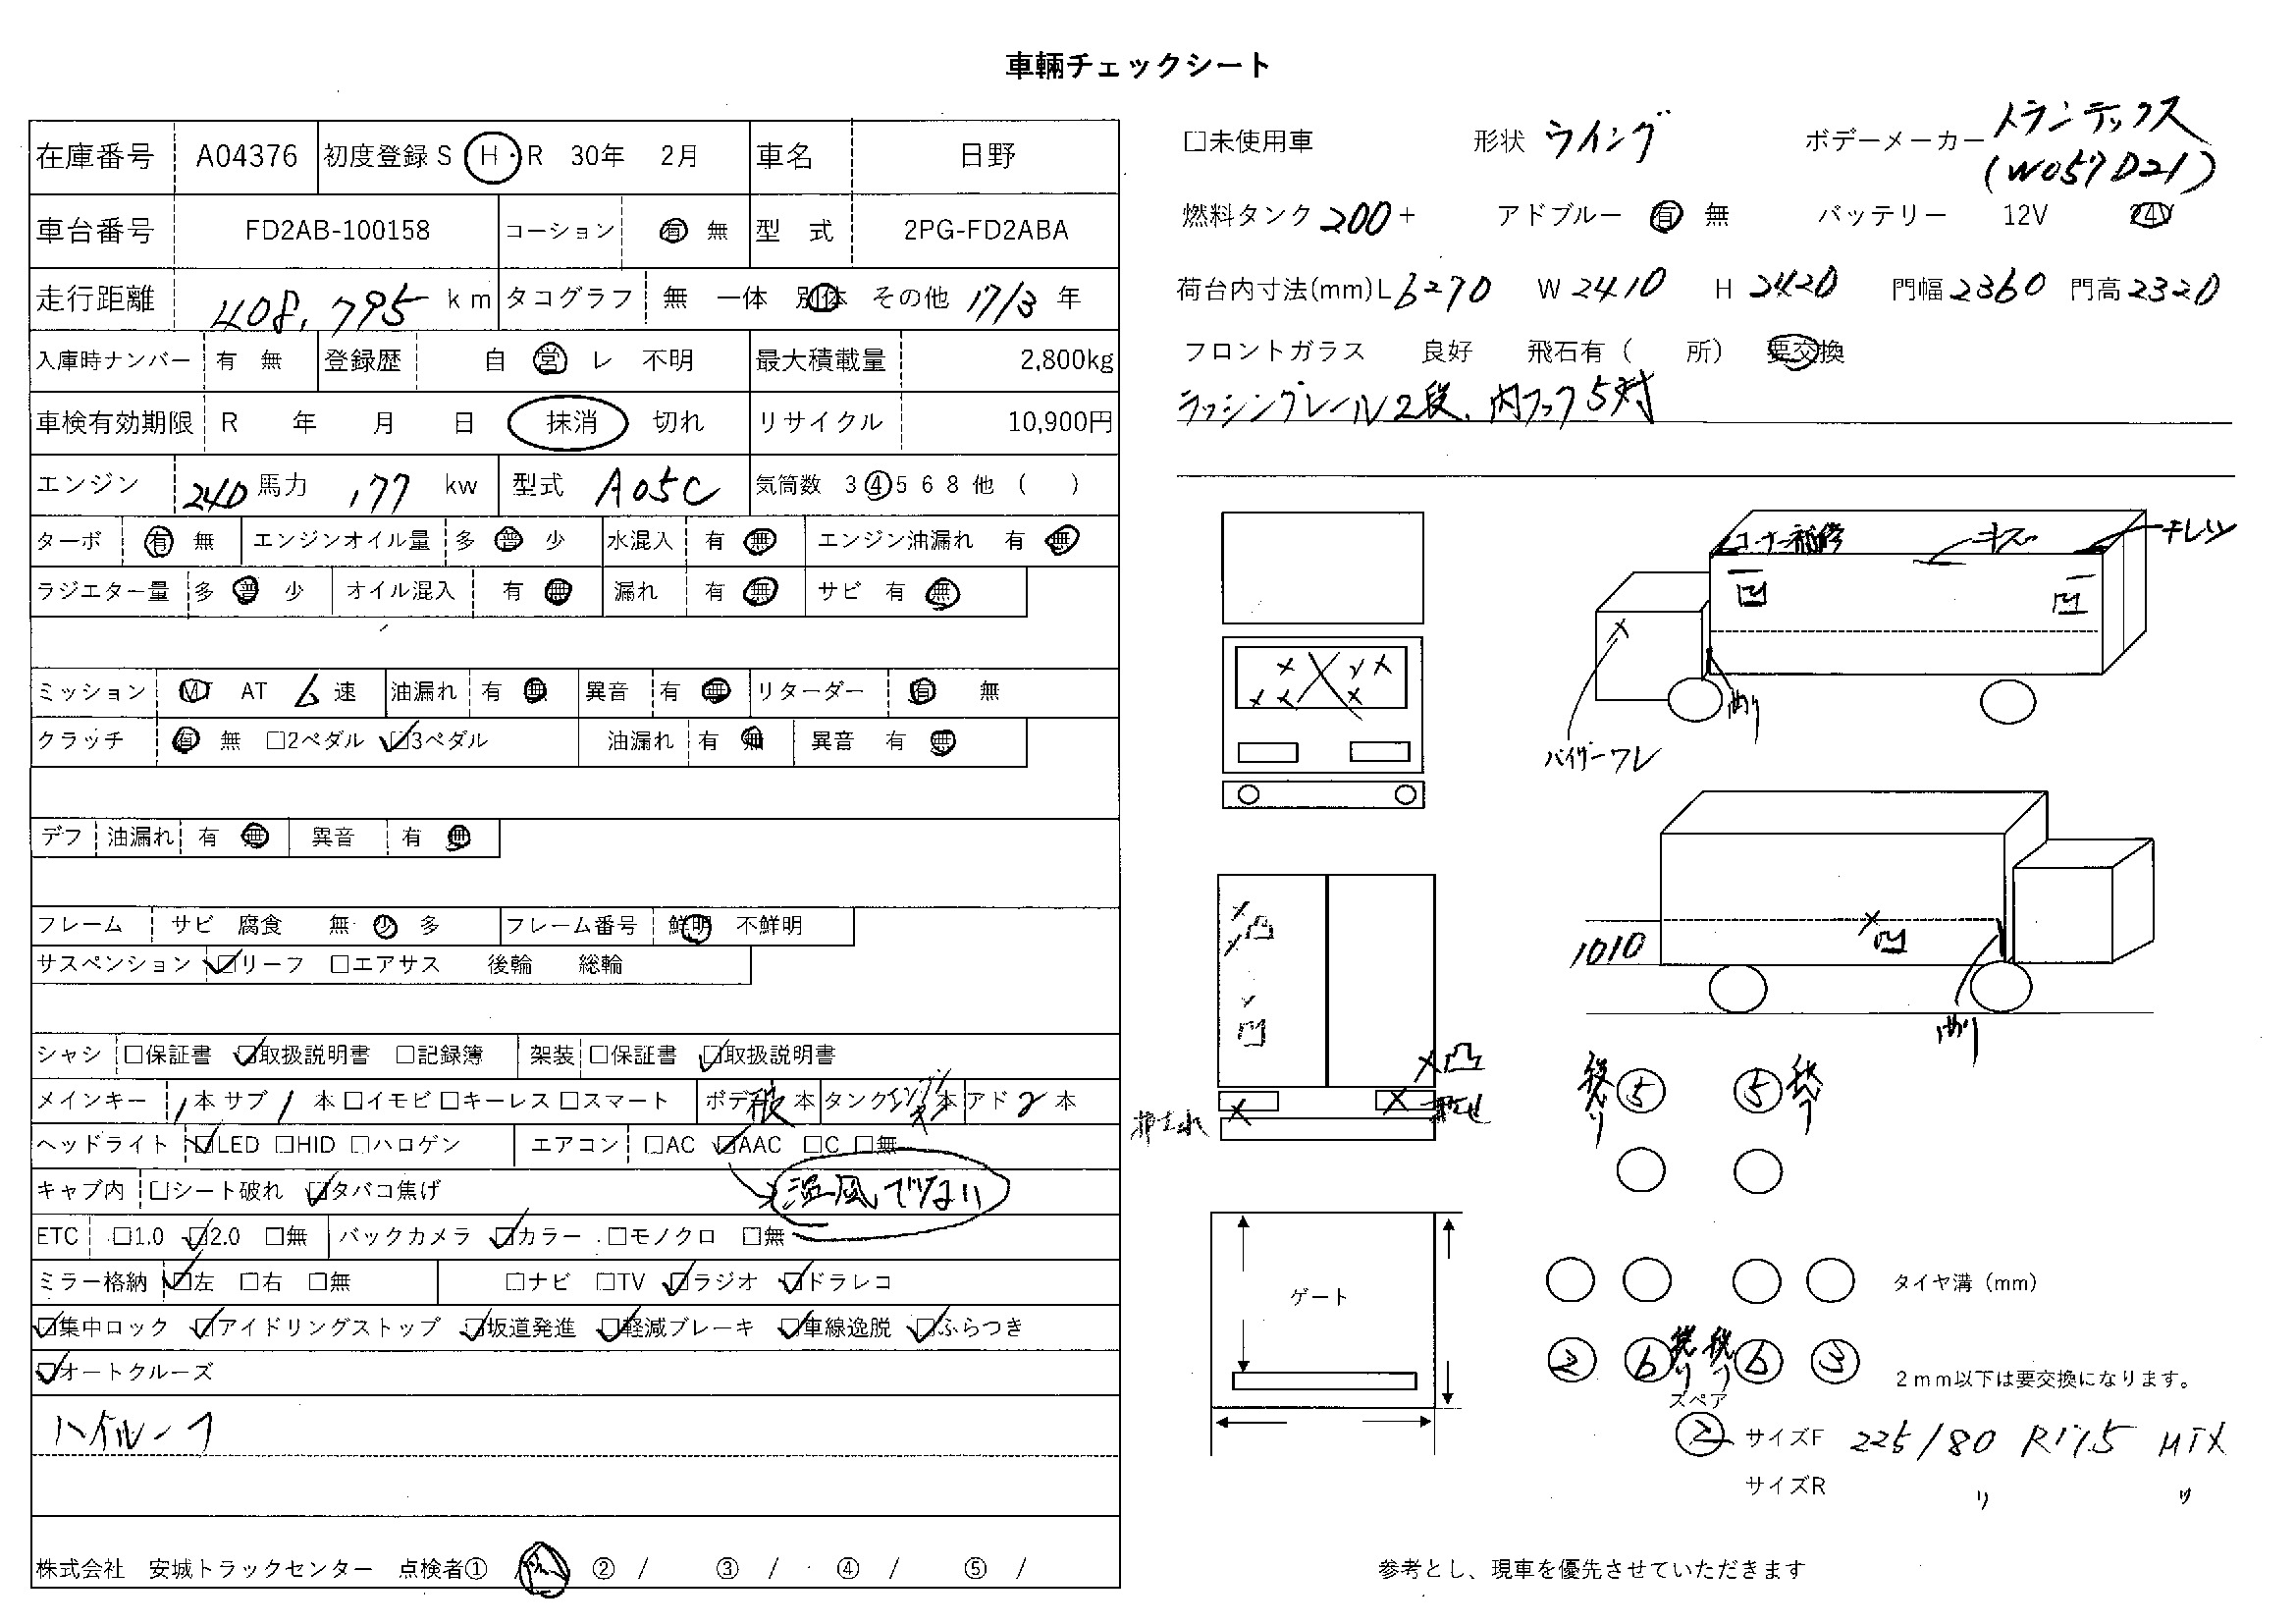 車輛チェックシート
在庫番号 A04376 初度登録 S H・R 30年 2月 車名 日野
車台番号 FD2AB-100158 コーション 有 無 型 式 2PG-FD2ABA
走行距離 408,795 km タコグラフ 無 一体 別体 その他 17/3 年
入庫時ナンバー 有 無 登録歴 自 営 レ 不明 最大積載量 2,800kg
車検有効期限 R 年 月 日 抹消 切れ リサイクル 10,900円
エンジン 240 馬力 177 kw 型式 A05C 気筒数 3 4 5 6 8 他 ( )
ターボ 有 無 エンジンオイル量 多 普 少 水混入 有 無 エンジン油漏れ 有 無
ラジエター量 多 普 少 オイル混入 有 無 漏れ 有 無 サビ 有 無
ミッション MT AT 6 速 油漏れ 有 無 異音 有 無 リターダー 有 無
クラッチ 有 無 □2ペダル □3ペダル 油漏れ 有 無 異音 有 無
デフ 油漏れ 有 無 異音 有 無
フレーム サビ 腐食 無 少 多 フレーム番号 鮮明 不鮮明
サスペンション □リーフ □エアサス 後輪 総輪
シャシ □保証書 □取扱説明書 □記録簿 架装 □保証書 □取扱説明書
メインキー 1 本 サブ 1 本 □イモビ □キーレス □スマート ボデー 本 タンク 本 アド 2 本
ヘッドライト □LED □HID □ハロゲン エアコン □AC □AAC □C □無
キャブ内 □シート破れ □タバコ焦げ 温風でない
ETC □1.0 □2.0 □無 バックカメラ □カラー □モノクロ □無
ミラー格納 □左 □右 □無 □ナビ □TV □ラジオ □ドラレコ
□集中ロック □アイドリングストップ □坂道発進 □軽減ブレーキ □車線逸脱 □ふらつき
□オートクルーズ
ハイルーフ
株式会社 安城トラックセンター 点検者① ② / ③ / ④ / ⑤ /
□未使用車 形状 ウイング ボデーメーカー トランテックス
(W057D21)
燃料タンク 200 + アドブルー 有 無 バッテリー 12V 24V
荷台内寸法(mm) L 6270 W 2410 H 2420 門幅 2360 門高 2320
フロントガラス 良好 飛石有 ( 所) 要交換
ラッシングレール2段、内フック5対
コーナー補修 キズ キレツ
凹 凹
曲り
バイザーワレ
凸
凹
1010 凹
曲り
凸
5 5
ゲート
タイヤ溝(mm)
2 6 6 3
2mm以下は要交換になります。
スペア
2 サイズF 225/80 R17.5 MIX
サイズR 〃 〃
参考とし、現車を優先させていただきます